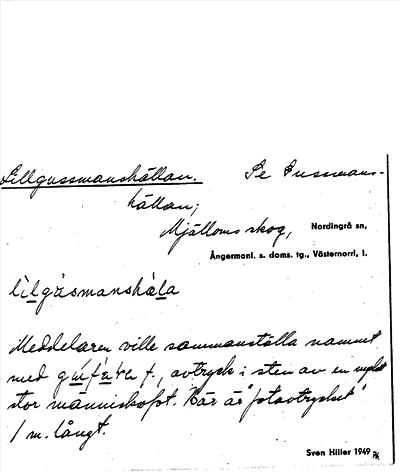 Lillgussmanshällan. Se Gussmans-
hällan;
Mjälloms skog, Nordingrå sn,
Ångermanl. s. doms. tg., Västernorrl. l.
lìlgùsmanshäla
Meddelaren ville sammanställa namnet
med , avtryck i sten av en mykt
stor människofot. Här är "fotavtrycket"
1 m. långt.
Sven Hiller 1949